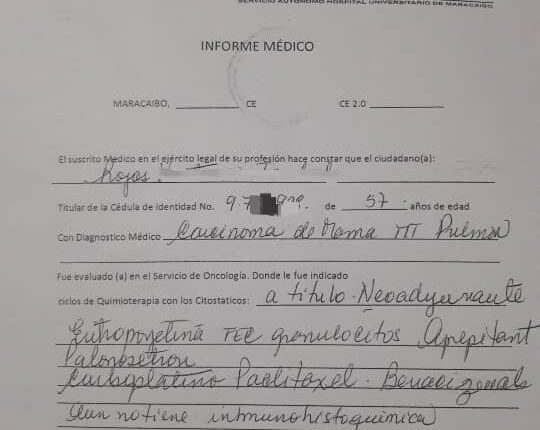 SERVICIO AUTÓNOMO HOSPITAL UNIVERSITARIO DE MARACAIBO
INFORME MÉDICO
MARACAIBO, ________ CE CE 2.0 ________
El suscrito Medico en el ejército legal de su profesión hace constar que el ciudadano(a):
Rojas
Titular de la Cédula de Identidad No. 9.7 de 57 años de edad
Con Diagnostico Médico Carcinoma de Mama TTT Pulmon
Fue evaluado (a) en el Servicio de Oncología. Donde le fue indicado
ciclos de Quimioterapia con los Citostaticos: a titulo Neoadyuvante
Eritropoyetina FEC granulocitos Aprepitant
Palonosetron
Carboplatino Paclitaxel. Bevacizumab
Aun no tiene inmunohistoquimica